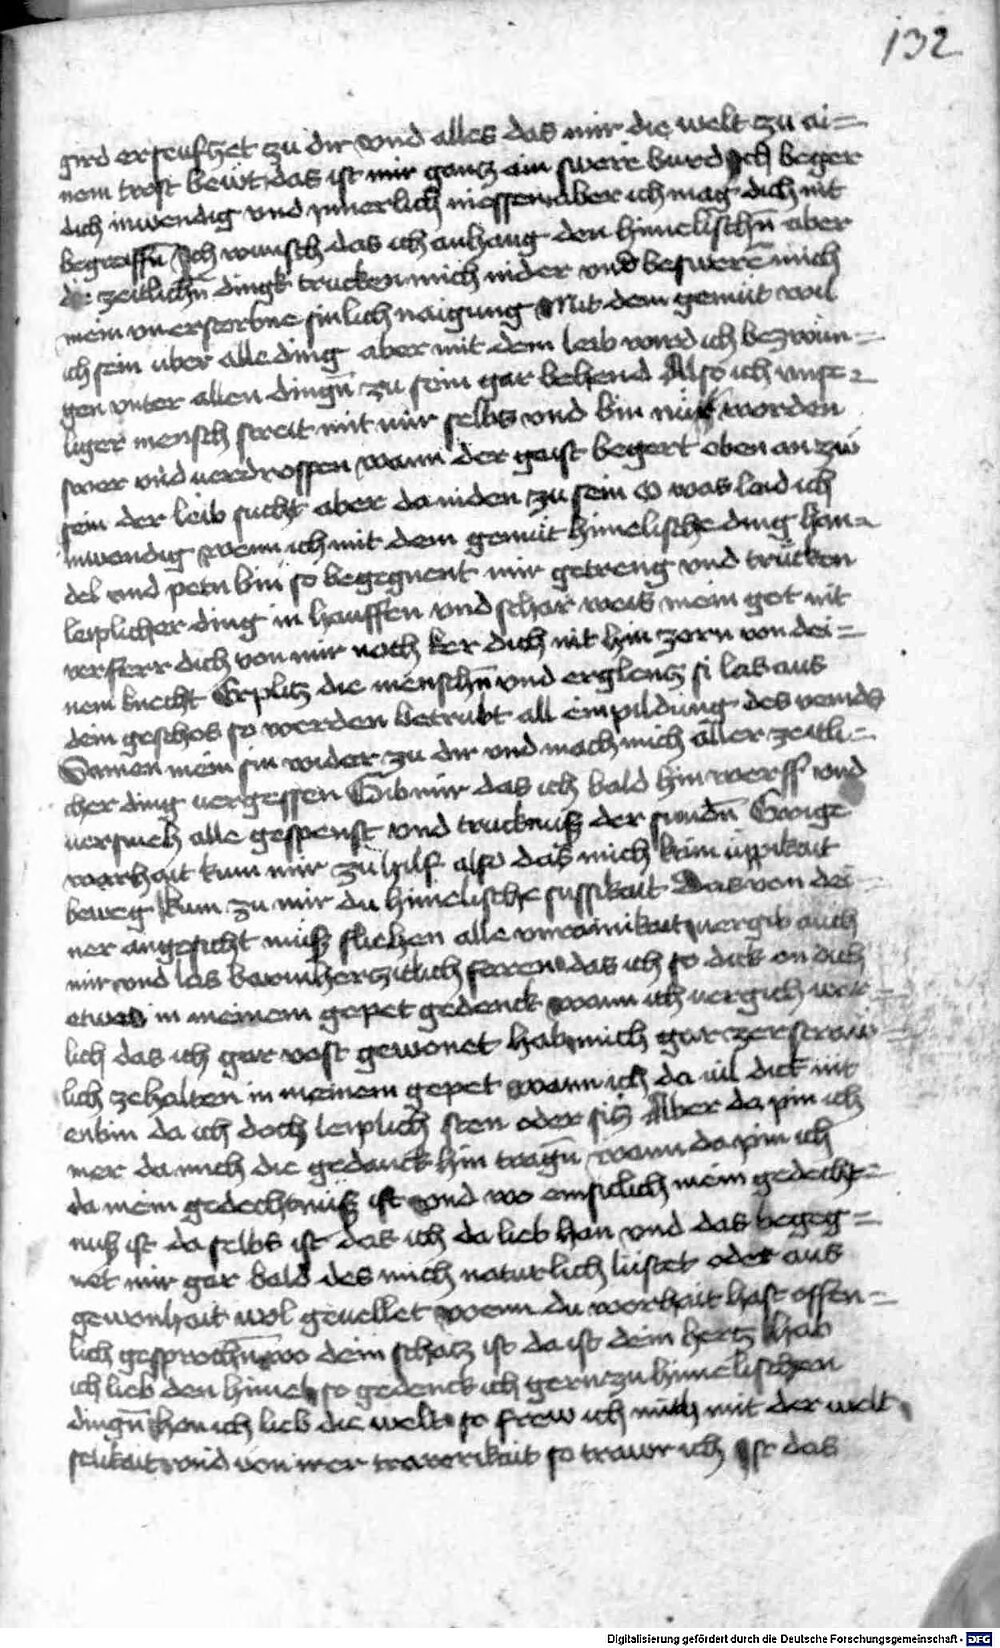 132
gird erseufftzet zu dir vnd alles das mir die welt zu ai=
nem trost bewt das ist mir gantz ain swere burd Ich beger
dich inwendig vnd ynnerlich niessen aber ich mag dich nit
begreiffn̄ Ich wunsch das ich anhang den himelischn̄ aber
die zeitlichn̄ dingk trucken mich nider vnd beswerē mich
mein vnersterbne sinlich naigung Mit dem gemüt wil
ich sein über alle ding aber mit dem leib wird ich bezwun=
gen vnter allen dingn̄ zu sein gar behend Also ich vnse=
liger mensch streit mit mir selbs vnd bin mir worden
swer vnd uerdrossen wann der geist begert oben an zu
sein der leib sucht aber da niden zu sein O was laid ich
inwendig wenn ich mit dem gemüt himelische ding han=
del vnd petn bin so begegnent mir getreng vnd trucken
leiplicher ding in hauffen vnd schar weis mein got nit
verferr dich von mir noch ker dich nit hin zorn von dei=
nem knecht Erplitz die menschn̄ vnd erglentz si las aus
dein geschos so werden betrubt all einpildung des veinds
Samen mein sin wider zu dir vnd mach mich aller zeitli=
cher ding uergessen Gib mir das ich bald hin werff vnd
uersmech alle gespenst vnd trucknuß der sundn̄ Ewige
warhait kum mir zu hilf also das mich kain üppikait
beweg kum zu mir du himelische sussikait Das von dei=
ner angesicht müß fliehen alle vnrainikait uergib auch
mir vnd las barmhertziclich faren das ich so dick on dich
etwas in meinem gepet gedenck wann ich uergich wer=
lich das ich gar vast gewonet hab mich gar zerstrew
lich zehalten in meinem gepet wann ich da vil dick nit
enbin da ich doch leiplich sten oder sitz Aber da pin ich
mer da mich die gedanck hin tragn̄ wann da pin ich
da mein gedechtnuß ist vnd wo emsiclich mein gedecht=
nuß ist da selbs ist das ich da lieb han vnd das begeg=
net mir gar bald des mich naturlich lüstet oder aus
gewonhait wol geuellet wenn du worhait hast offen=
lich gesprochn̄ wo dein schatz ist da ist dein hertz Hab
ich lieb den himel so gedenck ich gern zu himelischen
dingn̄ Han ich lieb die welt so frew ich mich mit der welt
selikait vnd von irer trawrikait so trawr ich Ist das
Digitalisierung gefördert durch die Deutsche Forschungsgemeinschaft - DFG